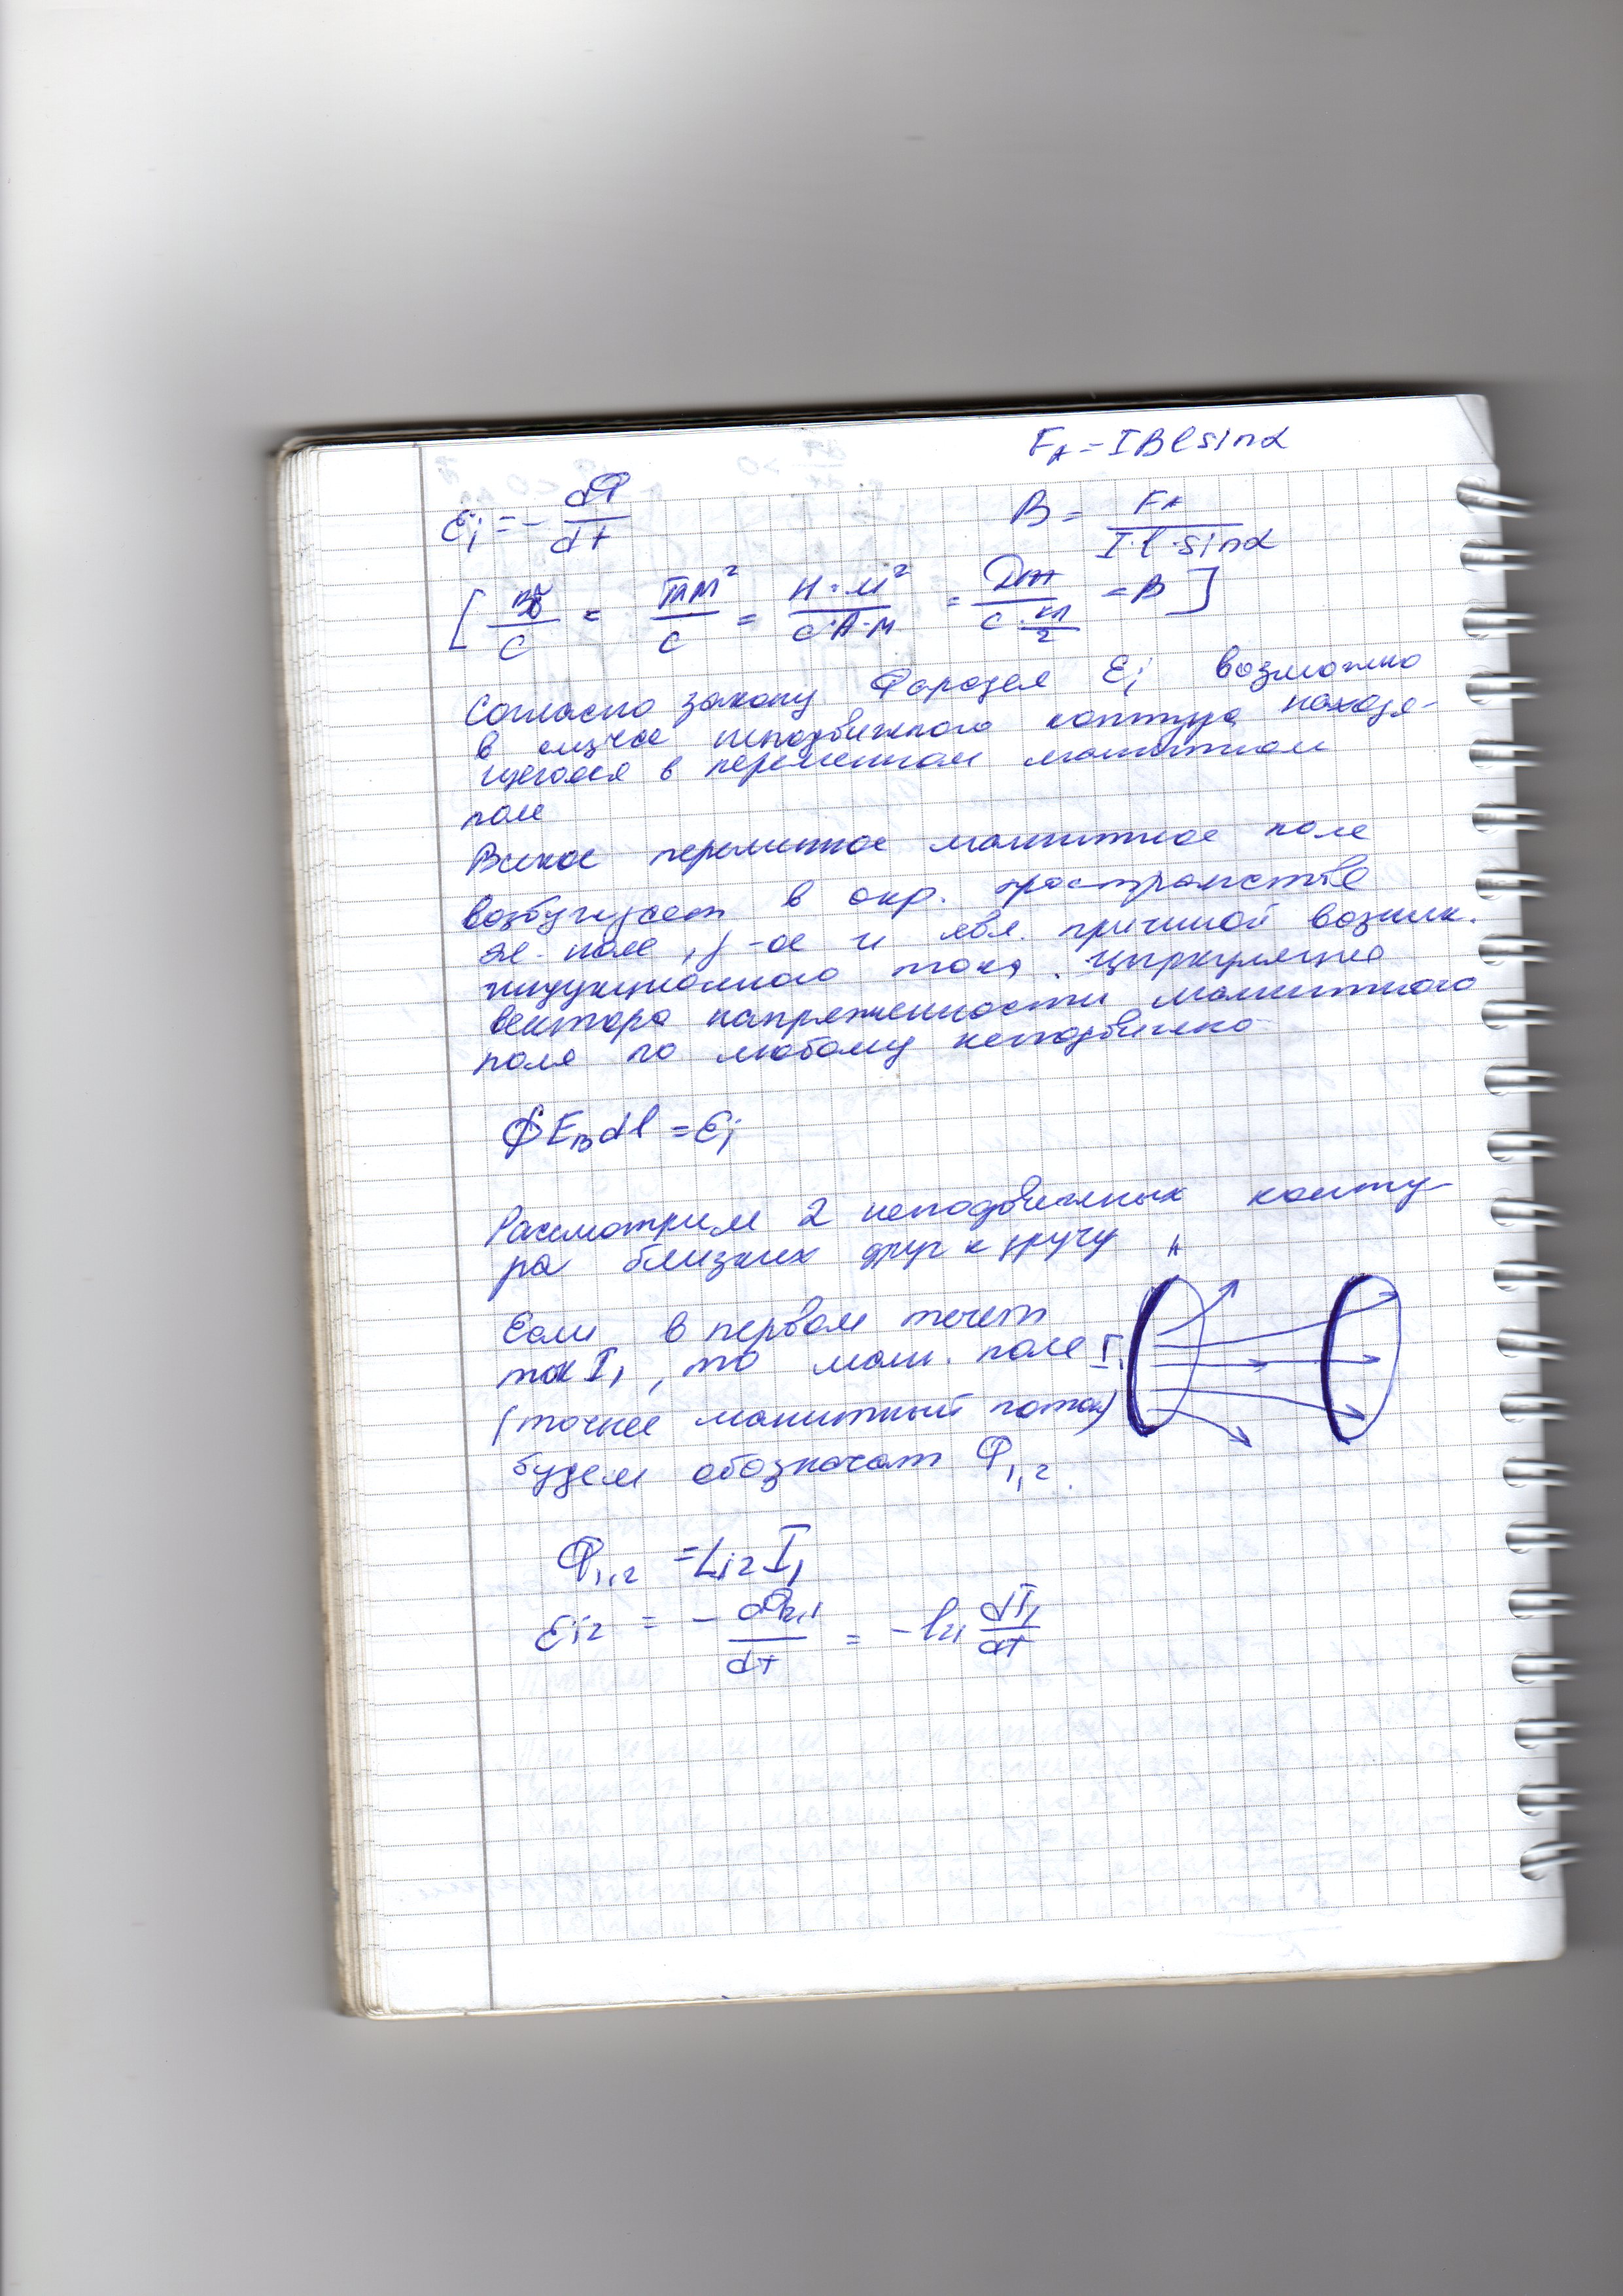 F_A = IBl sinα
ε_i = - dФ/dt
B = F_A / (I·l·sinα)
[ Вб/с = Тл м²/с = Н·м²/(с·А·м) = Дж/(с·кл/с) = В ]
Согласно закону Фарадея ε_i возможно
в случае неподвижного контура находя-
щегося в переменном магнитном
поле
Всякое переменное магнитное поле
возбуждает в окр. пространстве
эл. поле, -ое и явл. причиной возник.
индукционного тока. Циркуляция
вектора напряженности магнитного
поля по любому неподвижно
∮E_B dl = ε_i
Рассмотрим 2 неподвижных конту-
ра близких друг к другу
Если в первом течет
ток I₁, то магн. поле I₁
(точнее магнитный поток)
будем обозначат Ф₁,₂.
Ф₁,₂ = L₁₂I₁
ε_i2 = - dФ₂,₁/dt = -L₂₁ dI₁/dt